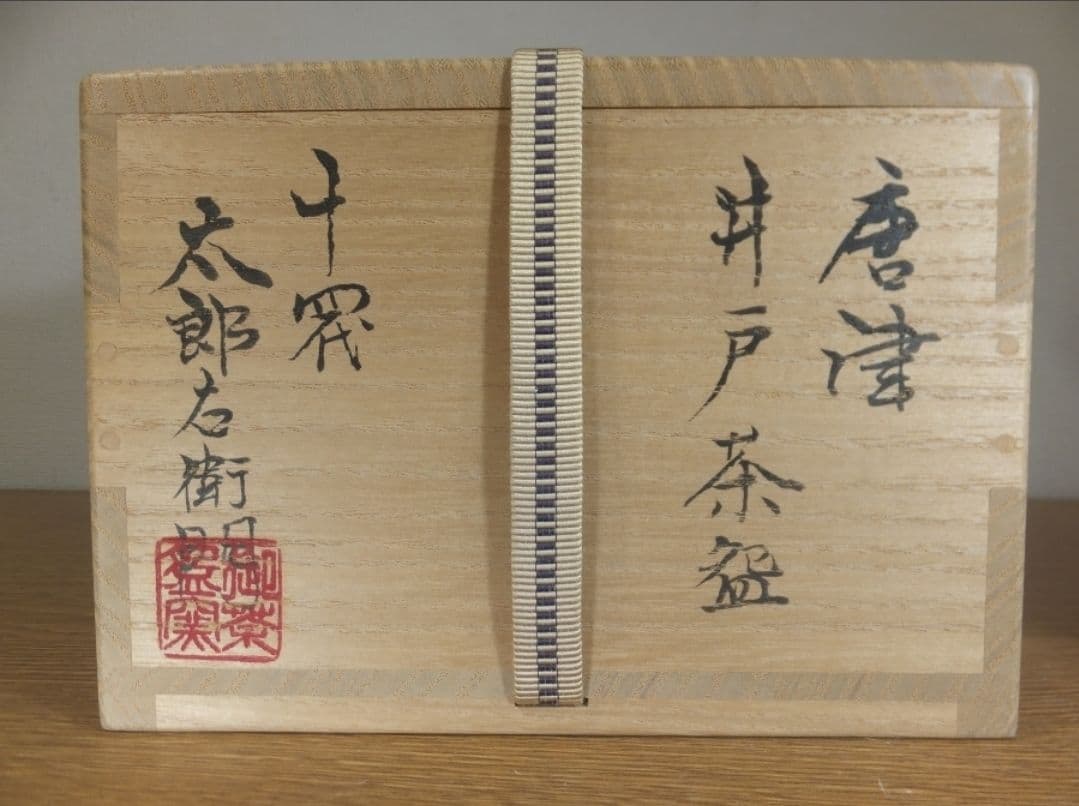 唐津
井戸茶盌
十四代
太郎右衛門
御茶
盌窯